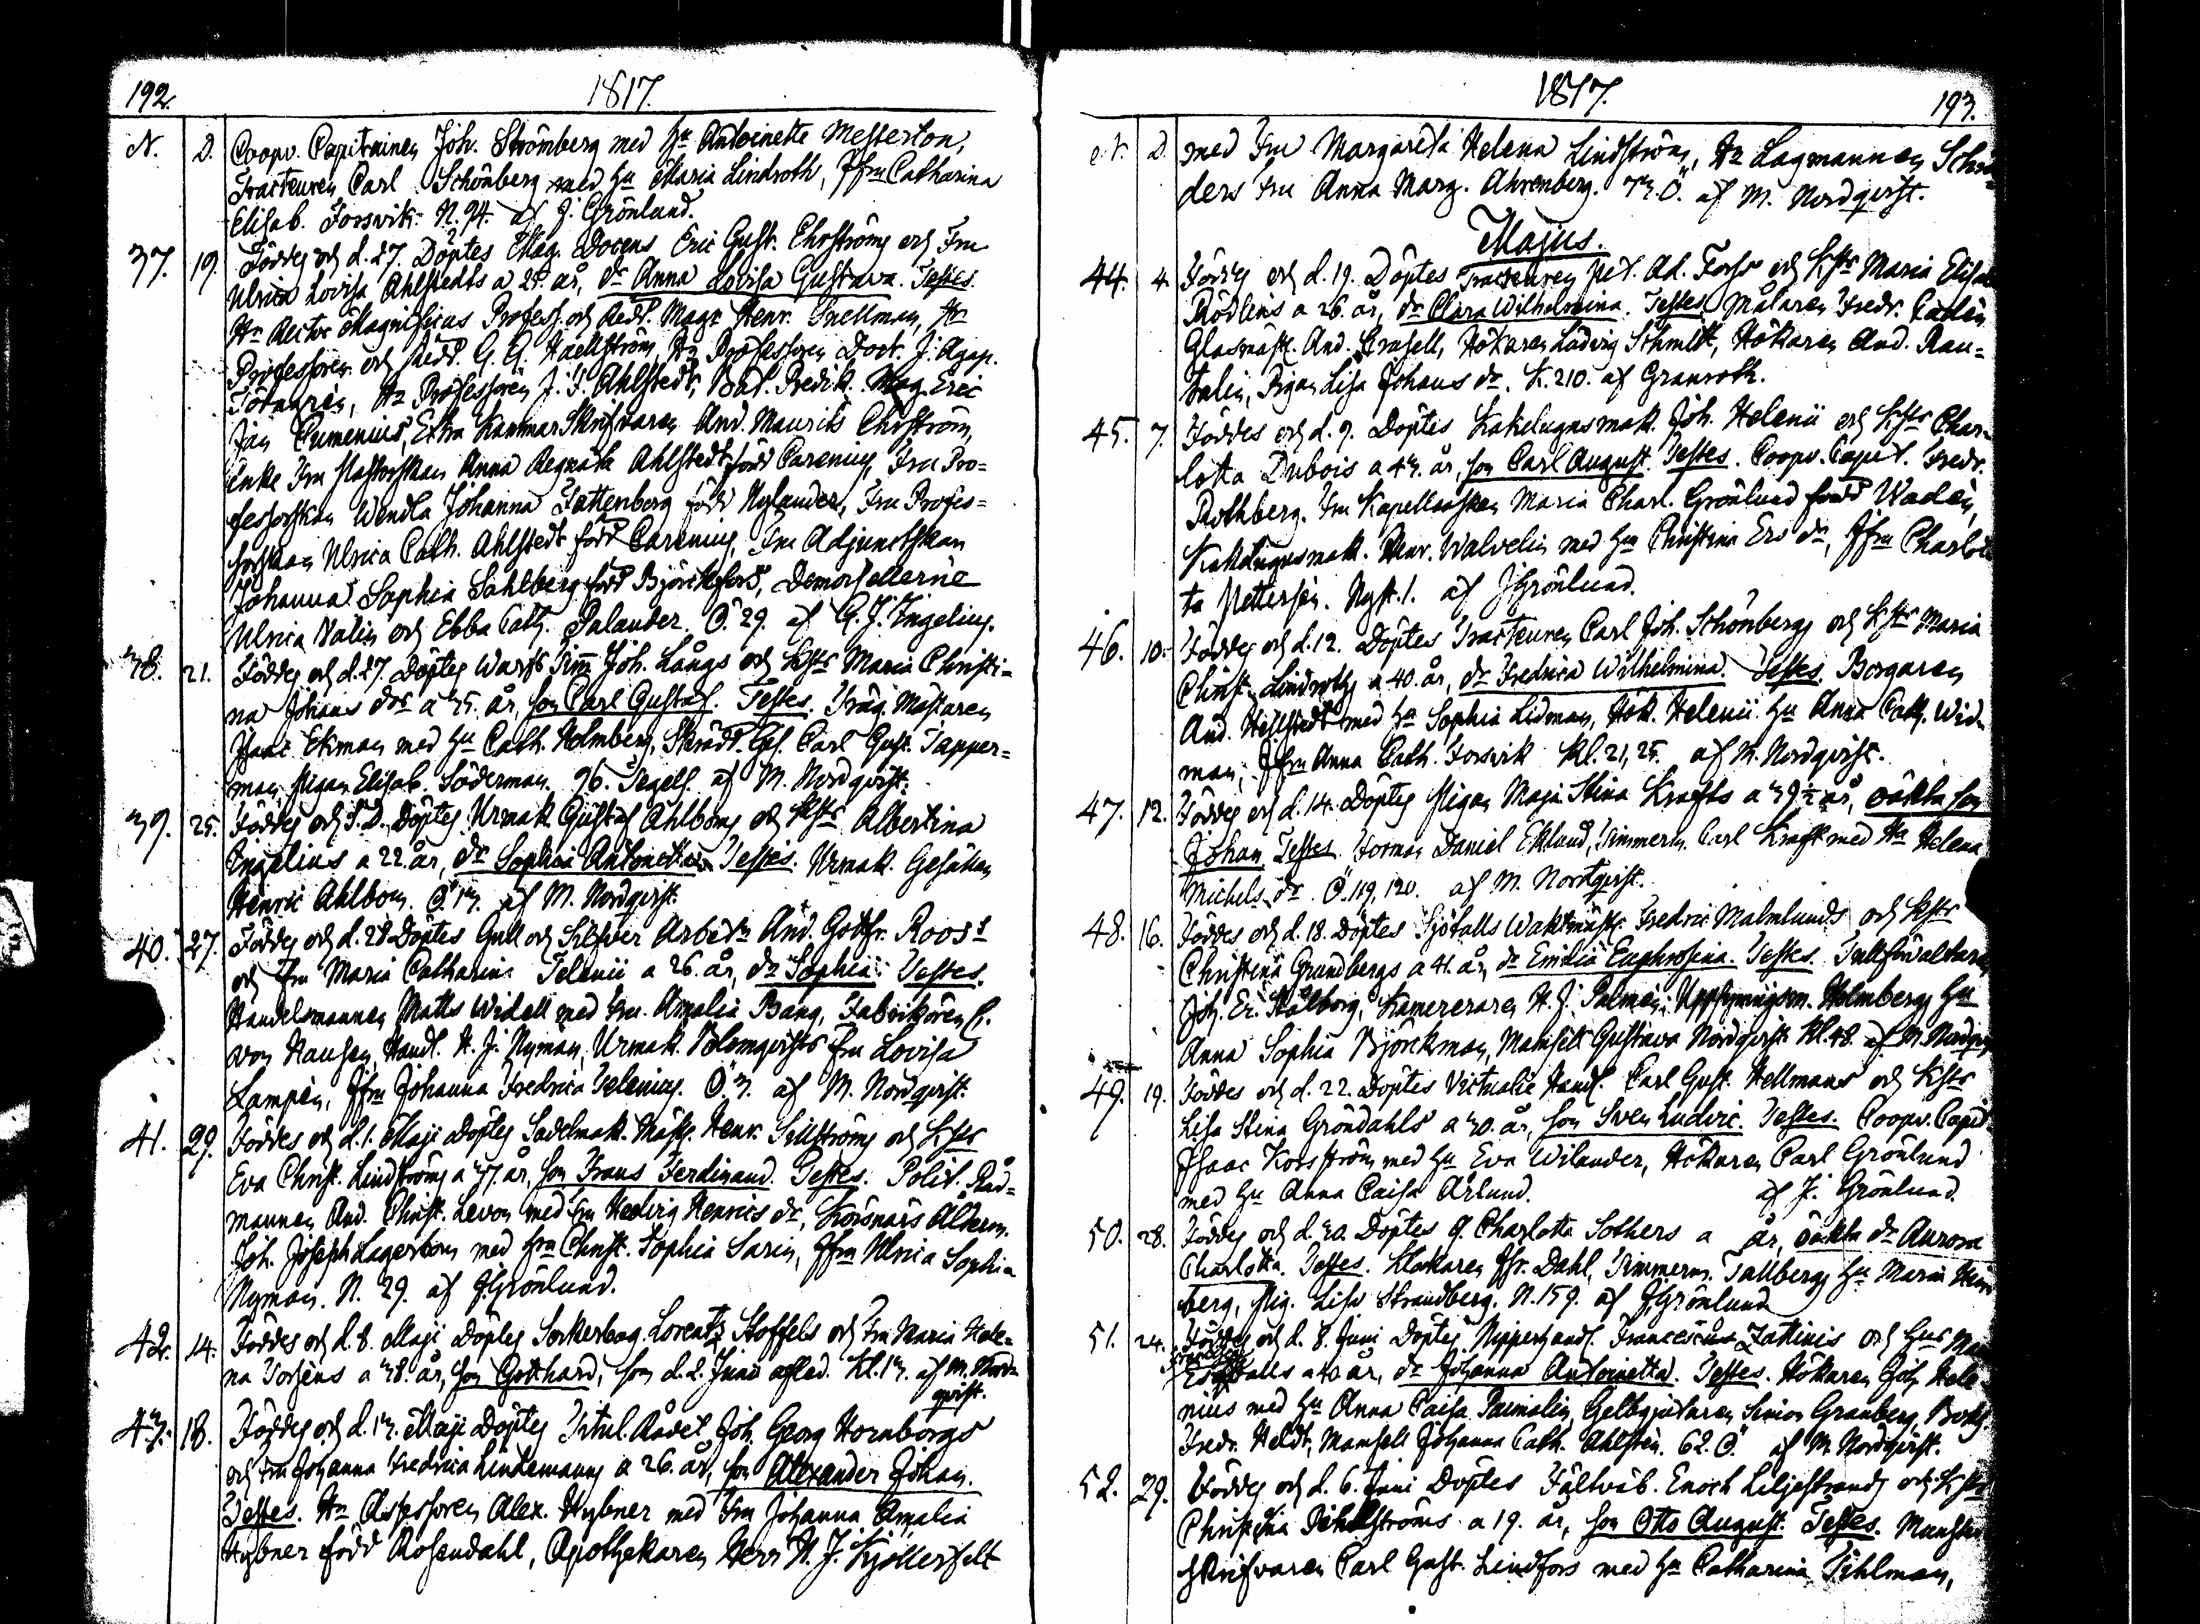 192.
1817.
N. D. Coopv. Capitainen Joh. Strömberg med Hu Antoinette Messerton,
Tracteuren Carl Schönberg med Hu Maria Lindroth, Jfrn Catharina
Elisab. Forsvik. N. 94. af J. Grönlund.
37. 19. Föddes och d. 27. Döptes Mag. Docens Eric Gust. Ehrströms och Fru
Ulrica Lovisa Ahlstedts a 25. år, dr Anna Lovisa Gustava. Testes.
Hr Rector Magnificus Profess. och Redd. Magr Henr. Snellman, Hr
Professoren och Redd. G. G. Haellström, Hr Professoren Doct. J. Agap.
Törngrén, Hr Professoren J. F. Ahlstedt, Bat. Predik. Mag. Eric
Jan Cumenius, Extra Kammarskrifvaren And. Maurits Ehrström,
Enke Fru Pastorskan Anna Regina Ahlstedt född Carenius, Fru Pro=
fessorskan Wendla Johanna Fattenborg född Nylander, Fru Profes=
sorskan Ulrica Cath. Ahlstedt född Carenius, Fru Adjunctskan
Johanna Sophia Sahlberg född Björcklund, Demoisellerne
Ulrica Valin och Ebba Cath. Palander. Ö. 29. af G. J. Ingelius.
38. 21. Föddes och d. 27. Döptes Warfs Timm. Joh. Långs och Hstr Maria Christi=
na Johans drs a 35. år, son Carl Gustaf. Testes. Träg. Mästaren
Isaac Ekman med Hu Cath. Holmberg, Skrädd. Ges. Carl Gust. Tapper=
man, Pigan Elisab. Söderman. 96. Tegels. af M. Nordqvist.
39. 25. Föddes och S. D. Döptes Urmak. Gustaf Ahlboms och Hstr Albertina
Ingelius a 22. år, dr Sophia Antonetta. Testes. Urmak. Gesällen
Henric Ahlbom. Ö. 13. af M. Nordqvist.
40. 27. Föddes och d. 28 Döptes Gull och Silfver Arbetn And. Gottfr. Rooss
och Fru Maria Catharina Telenii a 26. år, dr Sophia. Testes.
Handelsmannen Matts Widell med Fru Amalia Bang, Fabrikören C.
von Hausen, Handl. H. J. Nyman, Urmak. Blomqvists Fru Lovisa
Lampén, Jfrn Johanna Fredrica Telenius. Ö. 3. af M. Nordqvist.
41. 29. Föddes och d. 1. Maji Döptes Sadelmak. Mäst. Henr. Sillströms och Hstr
Eva Christ. Lindströms a 37. år, son Frans Ferdinand. Testes. Polit. Råd=
mannen And. Christ. Levon med Fru Hedvig Henrics dr, Körsnärs Ålderm.
Joh. Joseph Lagerbom med Fru Christ. Sophia Sarin, Jfrn Ulrica Sophia
Nyman. N. 29. af J. Grönlund.
42. 14. Föddes och d. 8. Maji Döptes Sockerbag. Lorentz Stoffels och Fru Maria Hele=
na Forséns a 38. år, son Gotthard, som d. 2. Junii afled. Kl. 13. af M. Nord=
qvist.
43. 18. Föddes och d. 13. Maji Döptes Titul. Rådet Joh. Georg Hornborgs
och Fru Johanna Fredrica Lindemanns a 26. år, son Alexander Johan.
Testes. Hr Assessoren Alex. Hybner med Fru Johanna Amalia
Hybner född Rosendahl, Apothekaren Herr H. J. Kjöllerfelt
1817.
193.
N. D. med Fru Margareta Helena Lindström, Hr Lagmannen Schrö=
ders Fru Anna Marg. Ahrenberg. 73. Ö. af M. Nordqvist.
Majus.
44. 4. Föddes och d. 19. Döptes Tracteuren Pet. Ad. Forss och Hstr Maria Elisab.
Rödlins a 26. år, dr Clara Wilhelmina. Testes. Målaren Fredr. Cadén
Glasmäst. And. Crusell, Hökaren Ludvig Schmidt, Hökaren And. Rau=
talin, Pigan Lisa Johans dr. K. 210. af Granroth.
45. 7. Föddes och d. 9. Döptes Kakelugnsmak. Joh. Helenii och Hstr Char=
lotta Dubois a 43. år, son Carl August. Testes. Coopv. Capit. Fredr.
Rothberg. Fru Kapellanskan Maria Charl. Grönlund född Wadén,
Kakelugnsmak. Henr. Walvelin med Hu Christina Ers dr, Jfrn Charlot=
ta Pettersén. Nyst. 1. af J. Grönlund.
46. 10. Föddes och d. 12. Döptes Tracteuren Carl Joh. Schönbergs och Hstr Maria
Christ. Lindroths a 40. år, dr Fredrica Wilhelmina. Testes. Borgaren
And. Hellstedt med Hu Sophia Lidman, Hök. Helenii Hu Anna Cath. Wid=
man, Jfrn Anna Cath. Forsvik Kl. 21, 25. af M. Nordqvist.
47. 12. Föddes och d. 14. Döptes Pigan Maja Stina Krafts a 39½ år, oäkta son
Johan. Testes. Forman Daniel Eklund, Timmerm. Carl Kraft med Hu Helena
Michels dr. Ö. 119, 120. af M. Nordqvist.
48. 16. Föddes och d. 18. Döptes Sjötulls Waktmäst. Fredric Malmlunds och Hstr
Christina Grundbergs a 41. år, dr Emilia Euphrosina. Testes. Tullförvaltaren
Joh. Er. Stålborg, Kamereraren H. J. Palmén, Uppsyningsm. Holmbergs Hu
Anna Sophia Björckman, Mamsell Gustava Nordqvist Kl. 48. af M. Nordqv.
49. 19. Föddes och d. 22. Döptes Victualie Handl. Carl Gust. Hellmans och Hstr
Lisa Stina Gröndahls a 30. år, son Sven Ludvic. Testes. Coopv. Capit.
Isaac Korsström med Hu Eva Wilander, Hökaren Carl Grönlund
med Hu Anna Caisa Ärlund. af J. Grönlund.
50. 28. Föddes och d. 30. Döptes Q. Charlotta Sothers a år, oäkta dr Aurora
Charlotta. Testes. Klockaren Jfr. Dahl, Timmerm. Tallbergs Hu Maria
berg, Pig. Lisa Strandberg. N. 159. af J. Grönlund
51. 24. Föddes och d. 8. Juni Döptes Nipperhandl. Francescus Zattinis och Hus
a 40 år, dr Johanna Antoinetta. Testes. Hökaren Joh. Hele=
nius med Hu Anna Caisa Paimelin, Gelbgjutaren Simon Granberg, Bokh.
Fredr. Heldt, Mamsell Johanna Cath. Ahlstén. 62. Ö. af M. Nordqvist.
52. 29. Föddes och d. 6. Juni Döptes Fältväb. Enoch Liljestrands och Hstr
Christina a 19. år, son Otto August. Testes. Munster=
skrifvaren Carl Gust. Lindfors med Hu Catharina Tihlman,